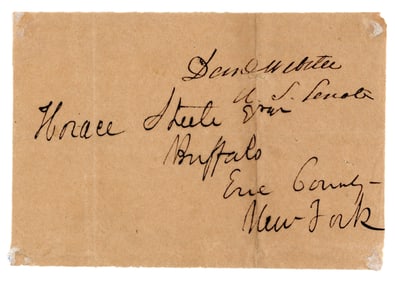 Danl Webster
U. S. Senate
Horace Steele Esqr
Buffalo
Erie County
New York